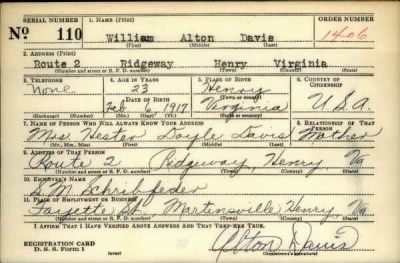 SERIAL NUMBER 1. NAME (Print) ORDER NUMBER
No 110 William Alton Davis 1406
(First) (Middle) (Last)
2. ADDRESS (Print)
Route 2 Ridgeway Henry Virginia
(Number and street or R. F. D. number) (Town) (County) (State)
3. TELEPHONE 4. AGE IN YEARS 5. PLACE OF BIRTH 6. COUNTRY OF CITIZENSHIP
None 23 Henry
DATE OF BIRTH (Town or county)
Feb 6, 1917 Virginia U.S.A
(Exchange) (Number) (Mo.) (Day) (Yr.) (State or country)
7. NAME OF PERSON WHO WILL ALWAYS KNOW YOUR ADDRESS 8. RELATIONSHIP OF THAT PERSON
Mrs. Hester Davis Mother
(Mr., Mrs., Miss) (First) (Middle) (Last)
9. ADDRESS OF THAT PERSON
Route 2 Ridgeway Henry Va
(Number and street or R. F. D. number) (Town) (County) (State)
10. EMPLOYER'S NAME
S.M. Schreibfeder
11. PLACE OF EMPLOYMENT OR BUSINESS
Fayette St. Martinsville Henry, Va
(Number and street or R. F. D. number) (Town) (County) (State)
I AFFIRM THAT I HAVE VERIFIED ABOVE ANSWERS AND THAT THEY ARE TRUE.
REGISTRATION CARD
D. S. S. Form 1 Alton Davis
(Registrant's signature)